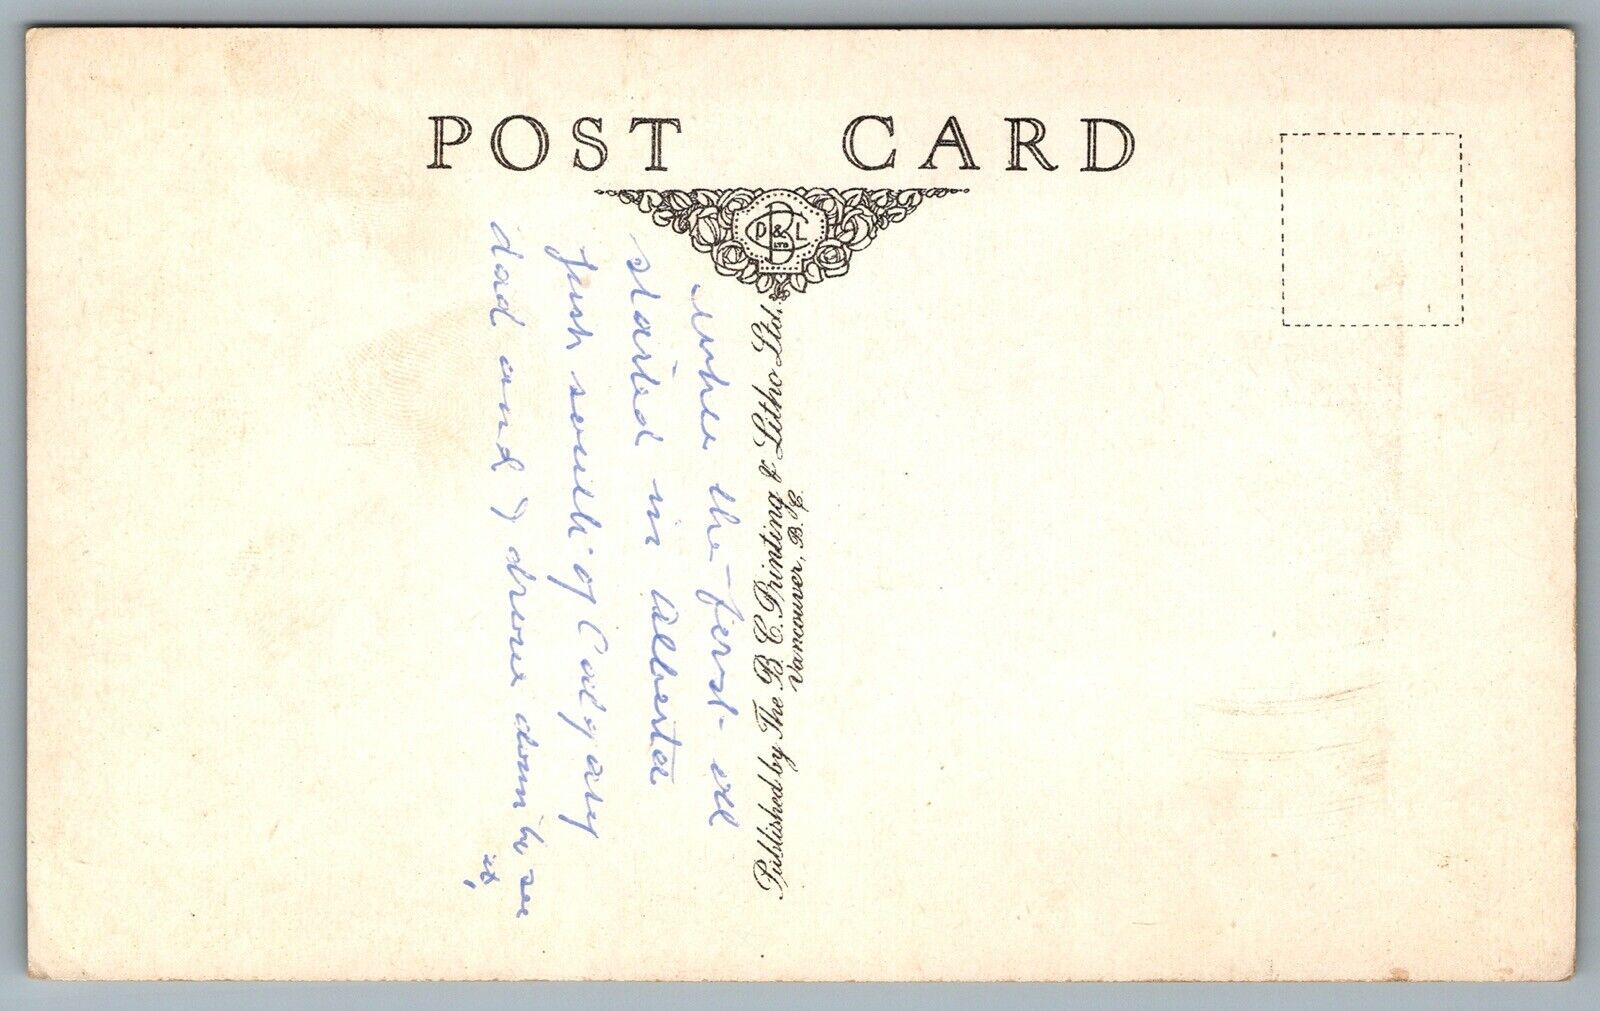 POST CARD
B C
P & L
LTD
Published by The B. C. Printing & Litho Ltd.
Vancouver, B. C.
when the first oil
started in Alberta
just south of Calgary
dad and I drove down to see
it,